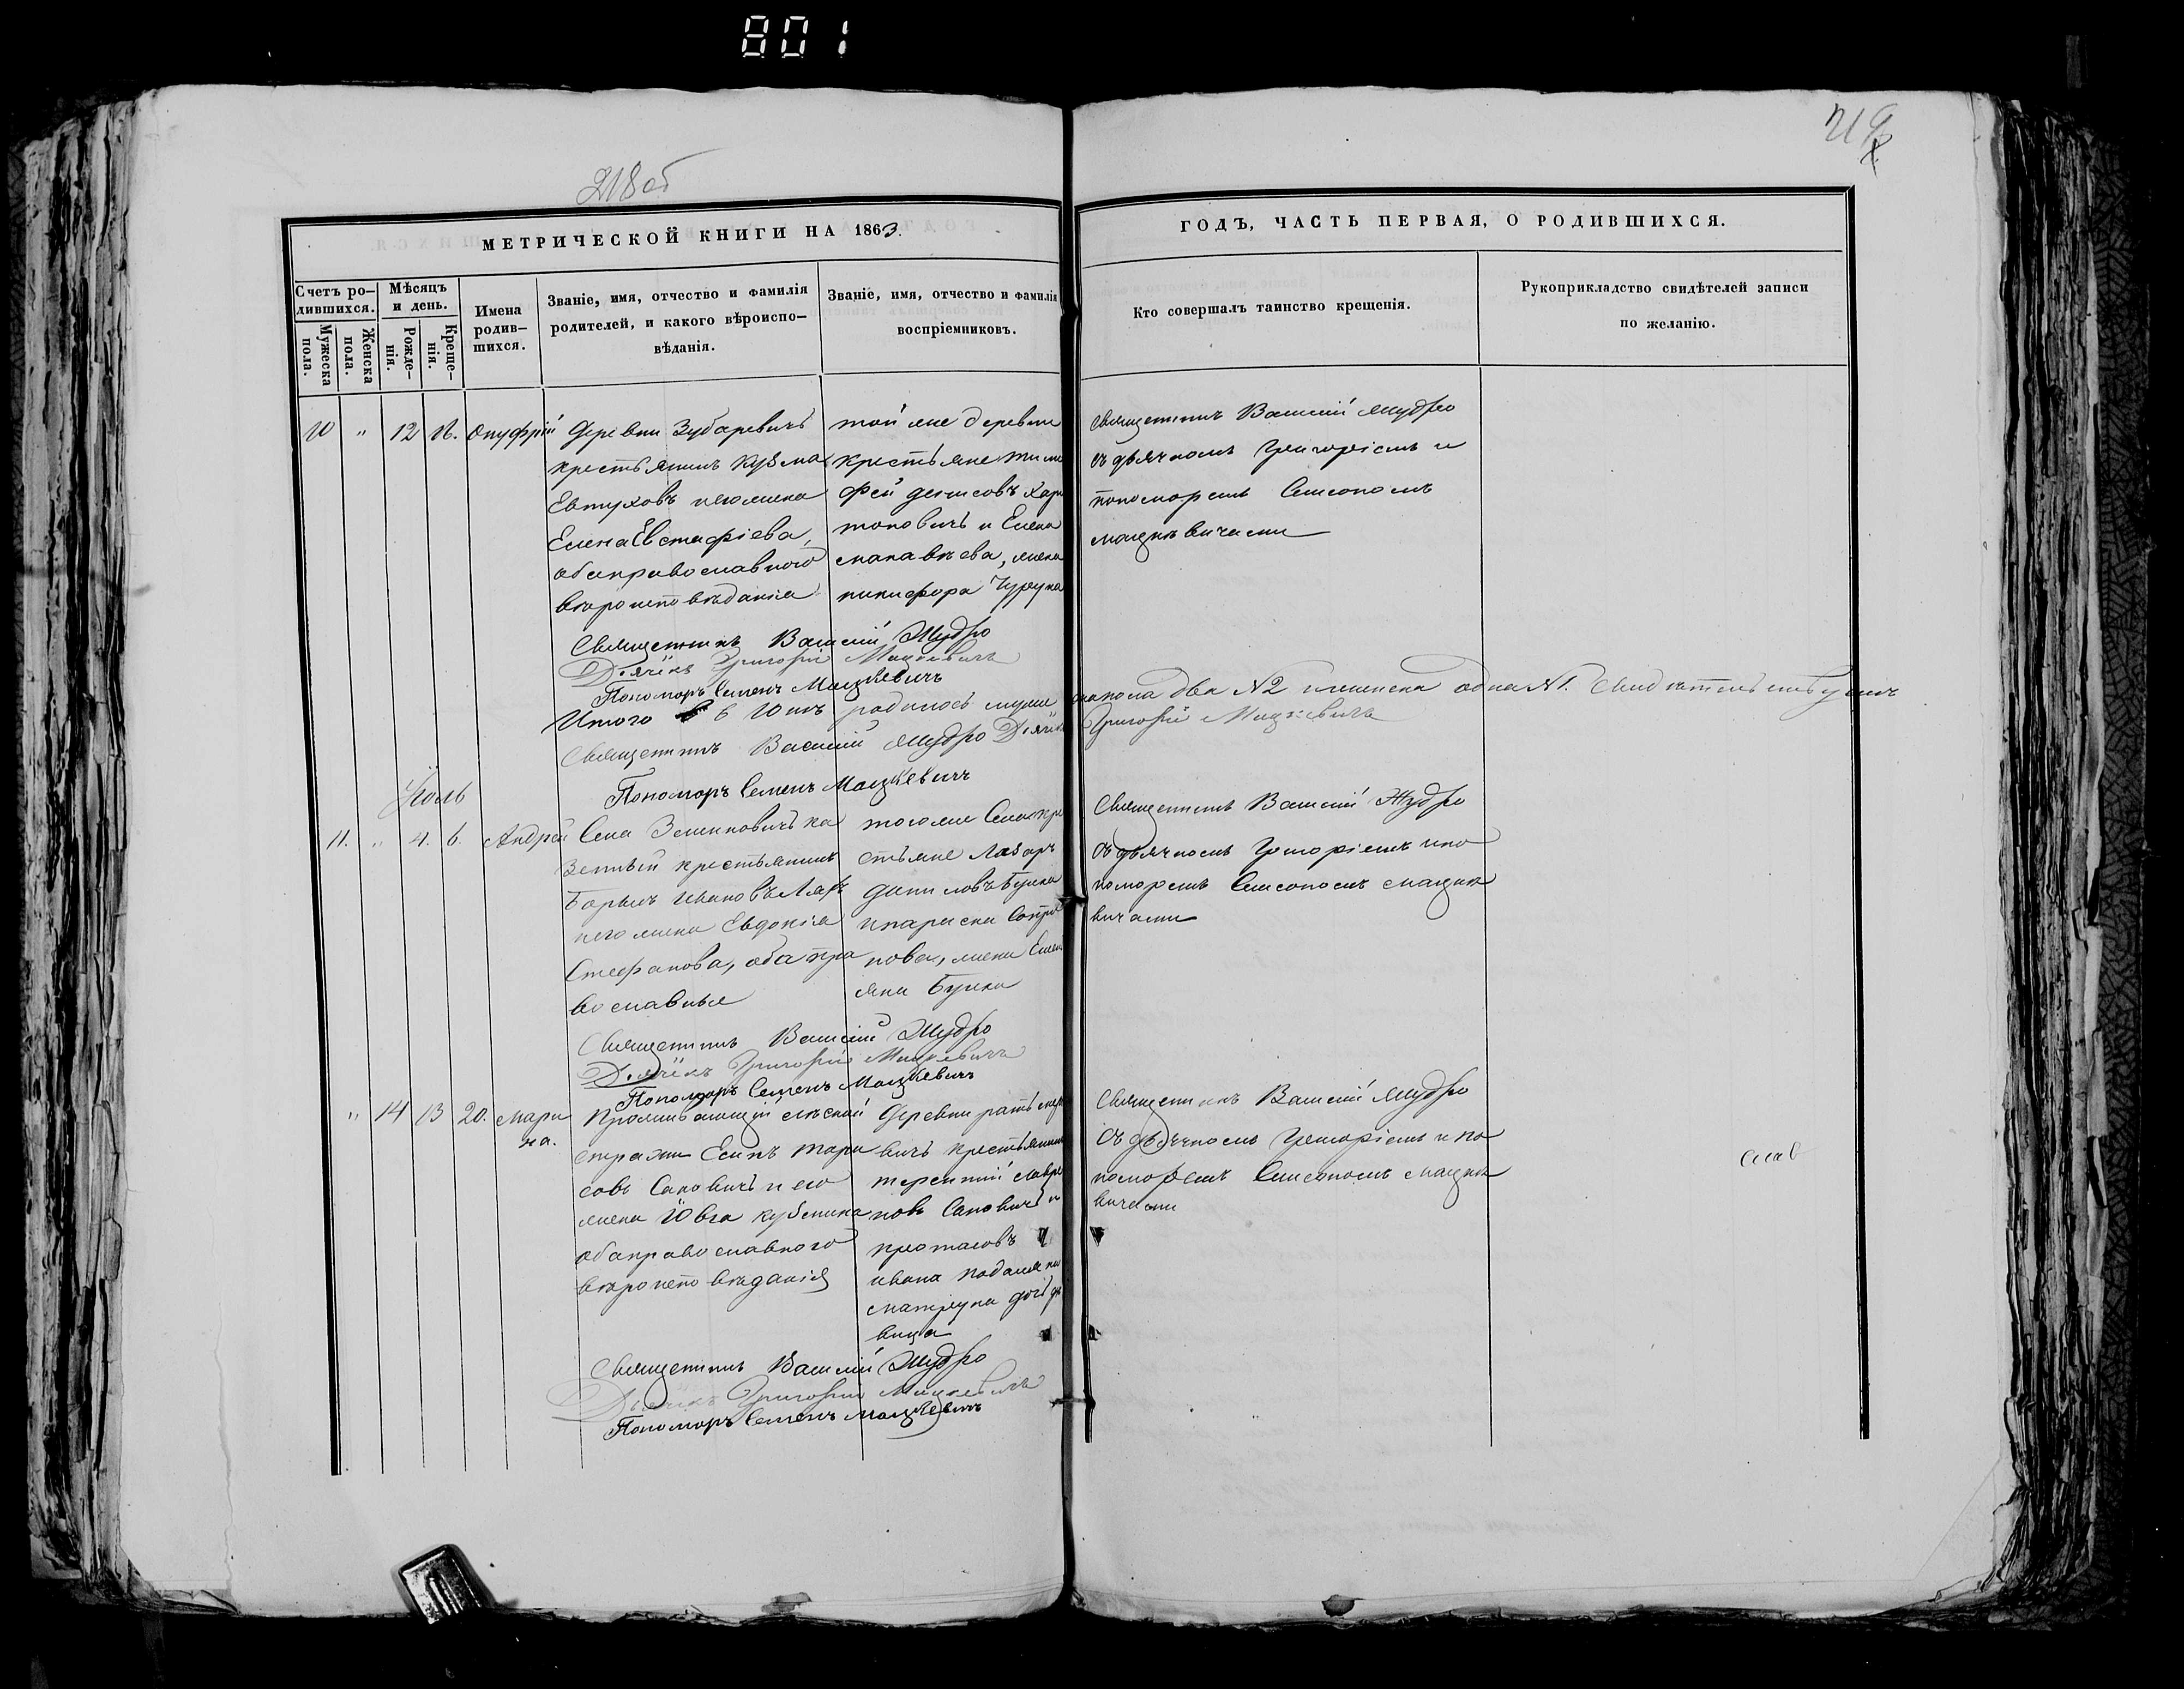 801
218об
219
МЕТРИЧЕСКОЙ КНИГИ НА 1863.
ГОДЪ, ЧАСТЬ ПЕРВАЯ, О РОДИВШИХСЯ.
Счетъ ро-
дившихся.
Мужеска
пола.
Женска
пола.
Мѣсяцъ
и день.
Рожде-
нія.
Креще-
нія.
Имена
родив-
шихся.
Званіе, имя, отчество и фамилія
родителей, и какого вѣроиспо-
вѣданія.
Званіе, имя, отчество и фамилія
воспріемниковъ.
Кто совершалъ таинство крещенія.
Рукоприкладство свидѣтелей записи
по желанію.
10 " 12 Онуфрій
Деревни Зубаревичъ
крестьянинъ Кузма
Евтуховъ и его жена
Елена Евстафіева,
оба православного
вѣроисповѣданія
той же деревни
крестьяне Тимо
фей Денисовъ Хари
тоновичъ и Елена
Макавѣева, жена
Никифора
Священникъ Василій Жудро
съ дьячкомъ Григоріемъ и
пономоремъ Симеономъ
Мацкевичами
Священникъ Василій Жудро
Дьячекъ Григорій Мацкевичъ
Пономоръ Семенъ Мацкевичъ
Итого в Юнѣ родилось муже
ска пола два N2 и женска одна N1. Свидѣтельствуемъ
Священникъ Василій Жудро Дьячекъ
Григорій Мацкевичъ
Пономоръ Семенъ Мацкевичъ
Юль
11. " 4. 6. Андрей
Села Зеленковичъ ка
зенный крестьянинъ
Иванов
и его жена Евдокія
Стефанова, оба пра
вославные
того же села кре
стьяне Лазарь
Даниловъ
и Параска Софро
нова, жена
Священникъ Василій Жудро
съ дьячкомъ Григоріемъ и по
номоремъ Симеономъ Мацке
вичами
Священникъ Василій Жудро
Дьячекъ Григорій Мацкевичъ
Пономоръ Семенъ Мацкевичъ
" 14 13 20. Мари
на.
Проживающій лѣсной
стражи Есипъ Тара
совъ Сакович и его
жена Ювга Кузмина
оба православного
вѣроисповѣданія
Деревни
вичъ крестьянинъ
Терентій Лавре
новъ Саковичъ и
Протасовъ
Ивана
Матруна дочь дѣ
вица
Священникъ Василій Жудро
съ дьячкомъ Григоріемъ и по
номоремъ Симеономъ Мацке
вичами
Священникъ Василій Жудро
Дьячекъ Григорій Мацкевичъ
Пономоръ Семенъ Мацкевичъ